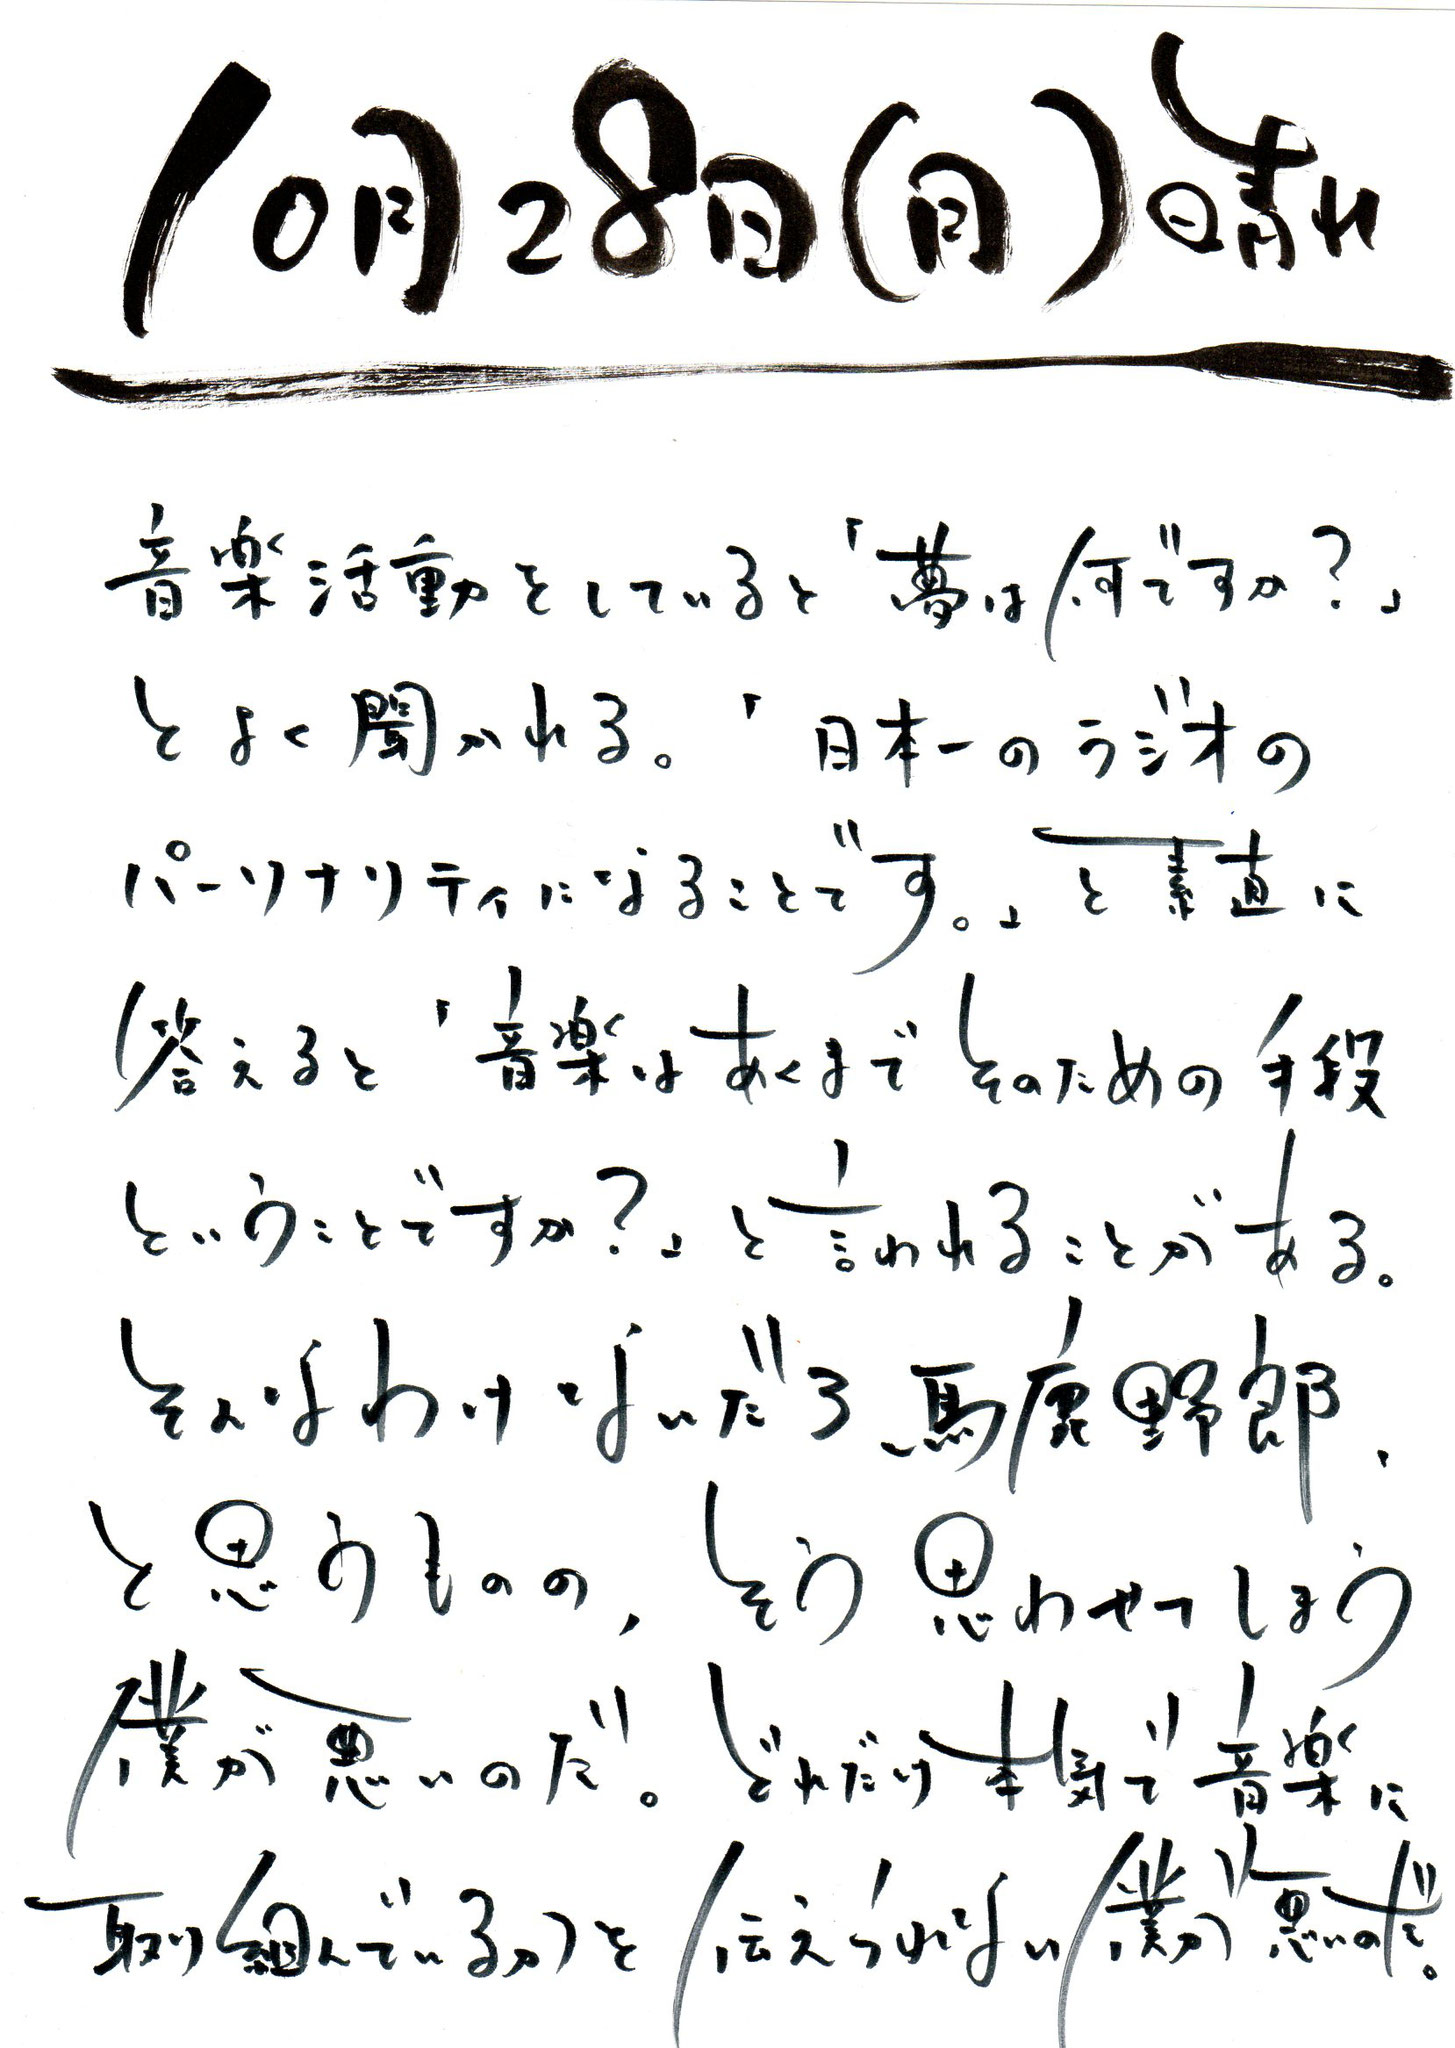 10月28日(月)晴れ
音楽活動をしていると「夢は何ですか?」
とよく聞かれる。「日本一のラジオの
パーソナリティになることです。」と素直に
答えると「音楽はあくまでそのための手段
ということですか?」と言われることがある。
そんなわけないだろ馬鹿野郎、
と思うものの、そう思わせてしまう
僕が悪いのだ。どれだけ本気で音楽に
取り組んでいるかを伝えられない僕が悪いのだ。